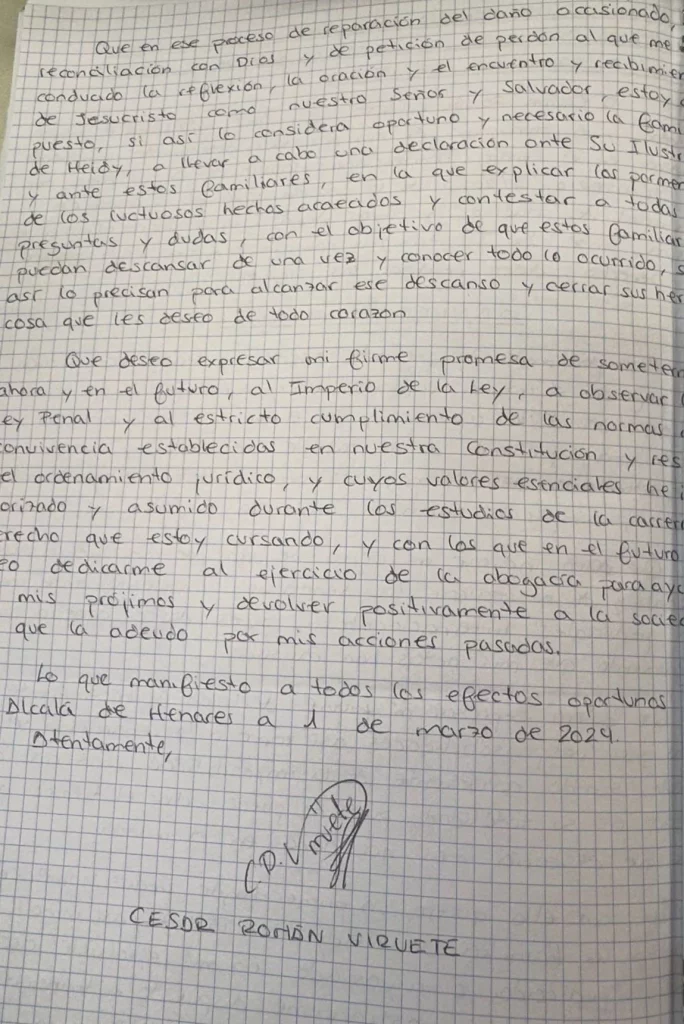 Que en ese proceso de reparación del daño ocasionado,
reconciliación con Dios y de petición de perdón al que me
conducido la reflexión, la oración y el encuentro y recibimien
de Jesucristo como nuestro Señor y Salvador, estoy
puesto, si así lo considera oportuno y necesario la fami
de Heidy, a llevar a cabo una declaración ante Su Ilustr
y ante estos familiares, en la que explicar los pormen
de los luctuosos hechos acaecidos y contestar a todas
preguntas y dudas, con el objetivo de que estos familiar
puedan descansar de una vez y conocer todo lo ocurrido, s
así lo precisan para alcanzar ese descanso y cerrar sus her
cosa que les deseo de todo corazón
Que deseo expresar mi firme promesa de someter
ahora y en el futuro, al Imperio de la Ley, a observar
ey Penal y al estricto cumplimiento de las normas
convivencia establecidas en nuestra Constitución y res
el ordenamiento jurídico, y cuyos valores esenciales he i
orizado y asumido durante los estudios de la carrer
recho que estoy cursando, y con los que en el futuro
eo dedicarme al ejercicio de la abogacía para ayu
mis prójimos y devolver positivamente a la socied
que la adeudo por mis acciones pasadas.
Lo que manifiesto a todos los efectos oportunos
Alcalá de Henares a 1 de marzo de 2024.
Atentamente,
CESAR ROMÁN VIRUETE